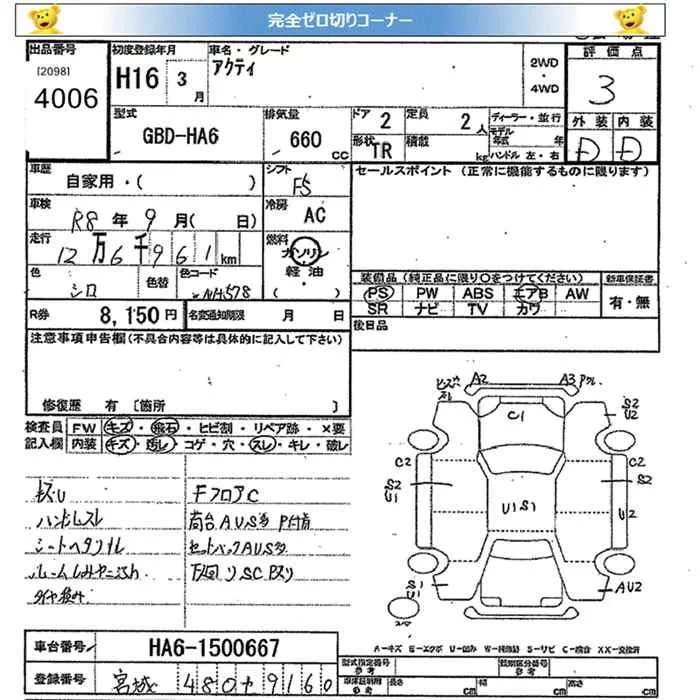 完全ゼロ切りコーナー
出品番号
[2098]
4006
初度登録年月
H16 3月
車名・グレード
アクティ
2WD
・
4WD
評価点
3
型式
GBD-HA6
排気量
660 CC
ドア 2
定員 2人
形状 TR
積載 kg
ディーラー・並行
モデル年式 年
ハンドル 左・右
外装 内装
D D
車歴
自家用・( )
シフト
F5
セールスポイント (正常に機能するものに限ります)
車検
R8年9月( 日)
冷房
AC
走行
12万6千961km
燃料
ガソリン
軽油
( )
色
シロ
色替
色コード
NH578
装備品 (純正品に限り○をつけてください)
新車保証書
PS PW ABS エアB AW
SR ナビ TV カワ
有・無
R券 8,150円
名変通知期限 月 日
後日品
注意事項申告欄(不具合内容等は具体的に記入して下さい)
修復歴 有 〔箇所 〕
検査員 FW キズ・飛石・ヒビ割・リペア跡・×要
記入欄 内装 キズ・汚れ・コゲ・穴・スレ・キレ・破レ
Fフロア C
ハンドルスレ
荷台 A.U.S多 P付着
シートヘタリ
A2
A3
C1
S2
U2
C2
S2
U1
U1S1
C2
S2
U2
S1
U1
AU2
A-キズ E-エクボ U-凹み W-補修跡 S-サビ C-腐食 XX-交換済
車台番号 HA6-1500667
登録番号 宮城 480 サ 9160
型式指定番号 参考
類別区分番号 参考
長さ cm
幅 cm
高さ cm